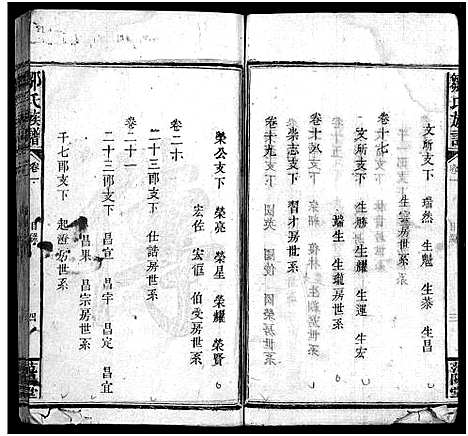 鄒氏族譜
卷一
目錄
三
文所支下 瑞然 生魁 生恭 生昌
卷十七
文所支下 生勝 生耀 生運 生宏
生龍房世系
卷十八
柴志支下 習才房世系
卷十九
卷二十
榮公支下 榮亮 榮星 榮耀 榮賢
宏佐 宏偓 伯受房世系
二十三郎支下 仕諧房世系
卷二十一
二十三郎支下 昌宣 昌宇 昌定 昌宜
昌果 昌宗房世系
千七郎支下 起澄房世系
鄒氏族譜
卷一
目錄
四